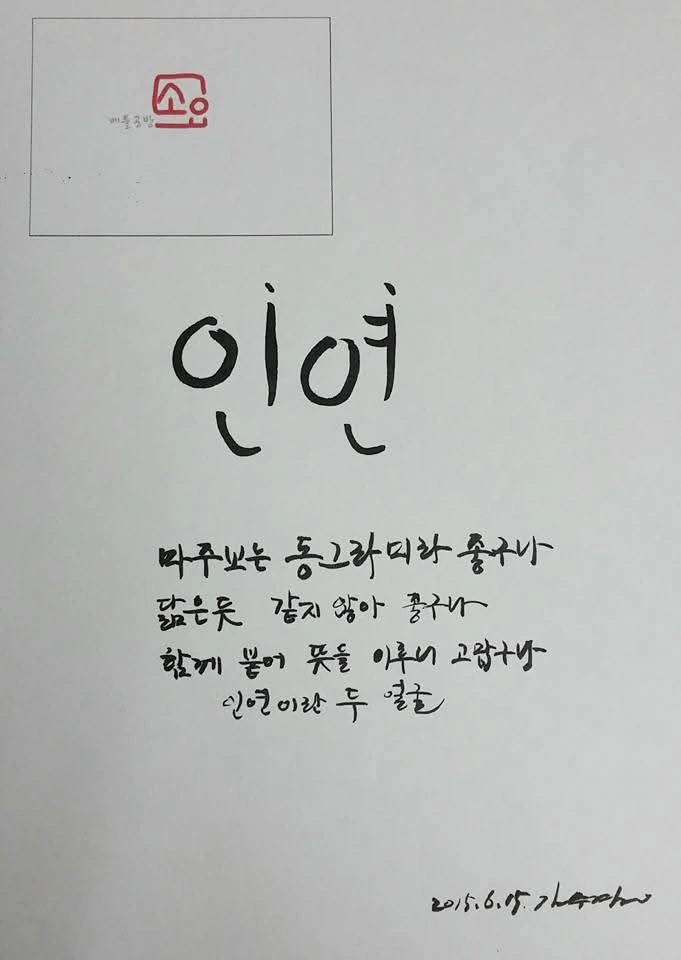 베틀공방 소요
인연
마주보는 동그라미라 좋구나
닮은듯 같지 않아 좋구나
함께 붙어 뜻을 이루니 고맙구나
인연이란 두 얼굴
2015.6.15.